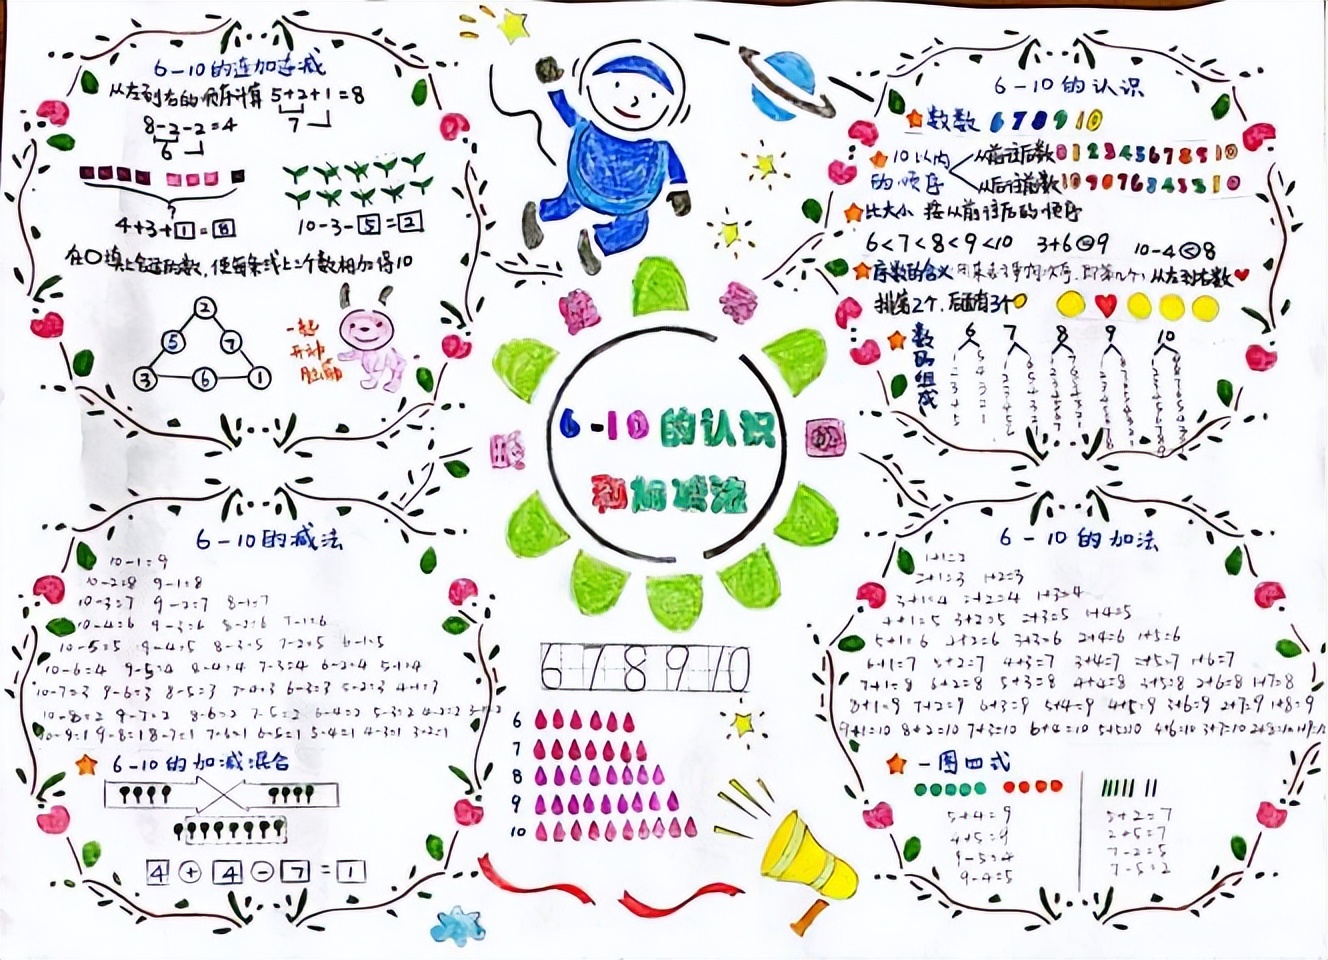 6-10的连加连减
从左到右的顺序计算 5+2+1=8
7
8-2-2=4
6
?
4+3+1=8
10-3-5=2
在○填上合适的数,使每条线上三个数相加得10
2
5 7
3 6 1
一起
开动
脑筋
6-10的认识
数数 6 7 8 9 10
10以内的顺序
从前往后数 0 1 2 3 4 5 6 7 8 9 10
从后往前数
比大小 按从前往后的顺序
6<7<8<9<10 3+6=9 10-4<8
序数的含义
从左到右数♥
排第2个,后面有3个
数的组成
6 7 8 9 10
6-10的认识
和加减法
6-10的减法
10-1=9
10-2=8 9-1=8
10-3=7 9-2=7 8-1=7
10-4=6 9-3=6 8-2=6 7-1=6
10-5=5 9-4=5 8-3=5 7-2=5 6-1=5
10-6=4 9-5=4 8-4=4 7-3=4 6-2=4 5-1=4
10-7=3 9-6=3 8-5=3 7-4=3 6-3=3 5-2=3 4-1=3
10-8=2 9-7=2 8-6=2 7-5=2 6-4=2 5-3=2 4-2=2
10-9=1 9-8=1 8-7=1 7-6=1 6-5=1 5-4=1 4-3=1 3-2=1
6-10的加减混合
4+4-7=1
6 7 8 9 10
6
7
8
9
10
6-10的加法
1+1=2
2+1=3 1+2=3
3+1=4 2+2=4 1+3=4
4+1=5 3+2=5 2+3=5 1+4=5
5+1=6 4+2=6 3+3=6 2+4=6 1+5=6
6+1=7 5+2=7 4+3=7 3+4=7 2+5=7 1+6=7
7+1=8 6+2=8 5+3=8 4+4=8 3+5=8 2+6=8 1+7=8
8+1=9 7+2=9 6+3=9 5+4=9 4+5=9 3+6=9 2+7=9 1+8=9
9+1=10 8+2=10 7+3=10 6+4=10 5+5=10 4+6=10 3+7=10
一图四式
5+4=9
4+5=9
9-5=4
9-4=5
5+2=7
2+5=7
7-2=5
7-5=2